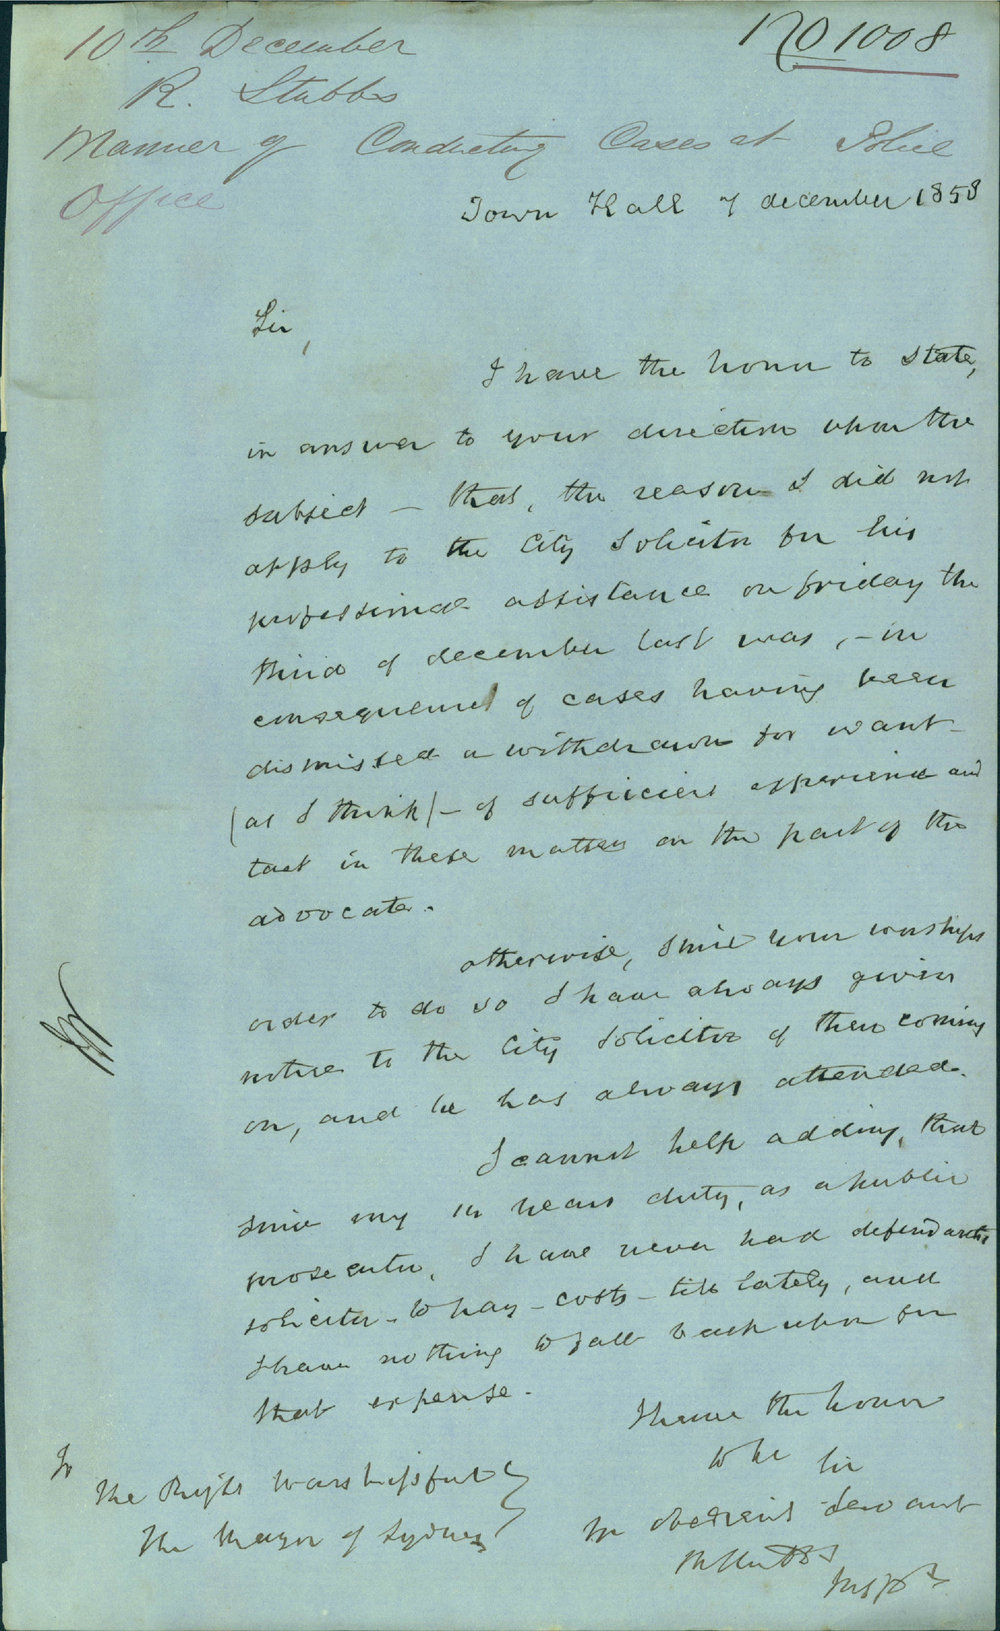 10th December
No 1008
R. Stubbs
Manner of Conducting Cases at Police
Office
Town Hall 7 december 1858
Sir,
I have the honor to state,
in answer to your direction upon the
subject – that, the reason I did not
apply to the City Solicitor for his
professional assistance on friday the
third of december last was, – in
consequence of cases having been
dismissed or withdrawn for want –
(as I think) – of sufficient experience and
tact in these matters on the part of the
advocate.
otherwise, since your worships
order to do so I have always given
notice to the City Solicitor of their coming
on, and he has always attended.
I cannot help adding, that
since my years duty, as a public
prosecutor, I have never had defendants
solicitor – to pay – costs – till lately, and
I have nothing to fall back upon for
that expense.
I have the honor
to be Sir
Yr obedient Servant
R Stubbs
Inspr
To
The Right Worshipful
The Mayor of Sydney